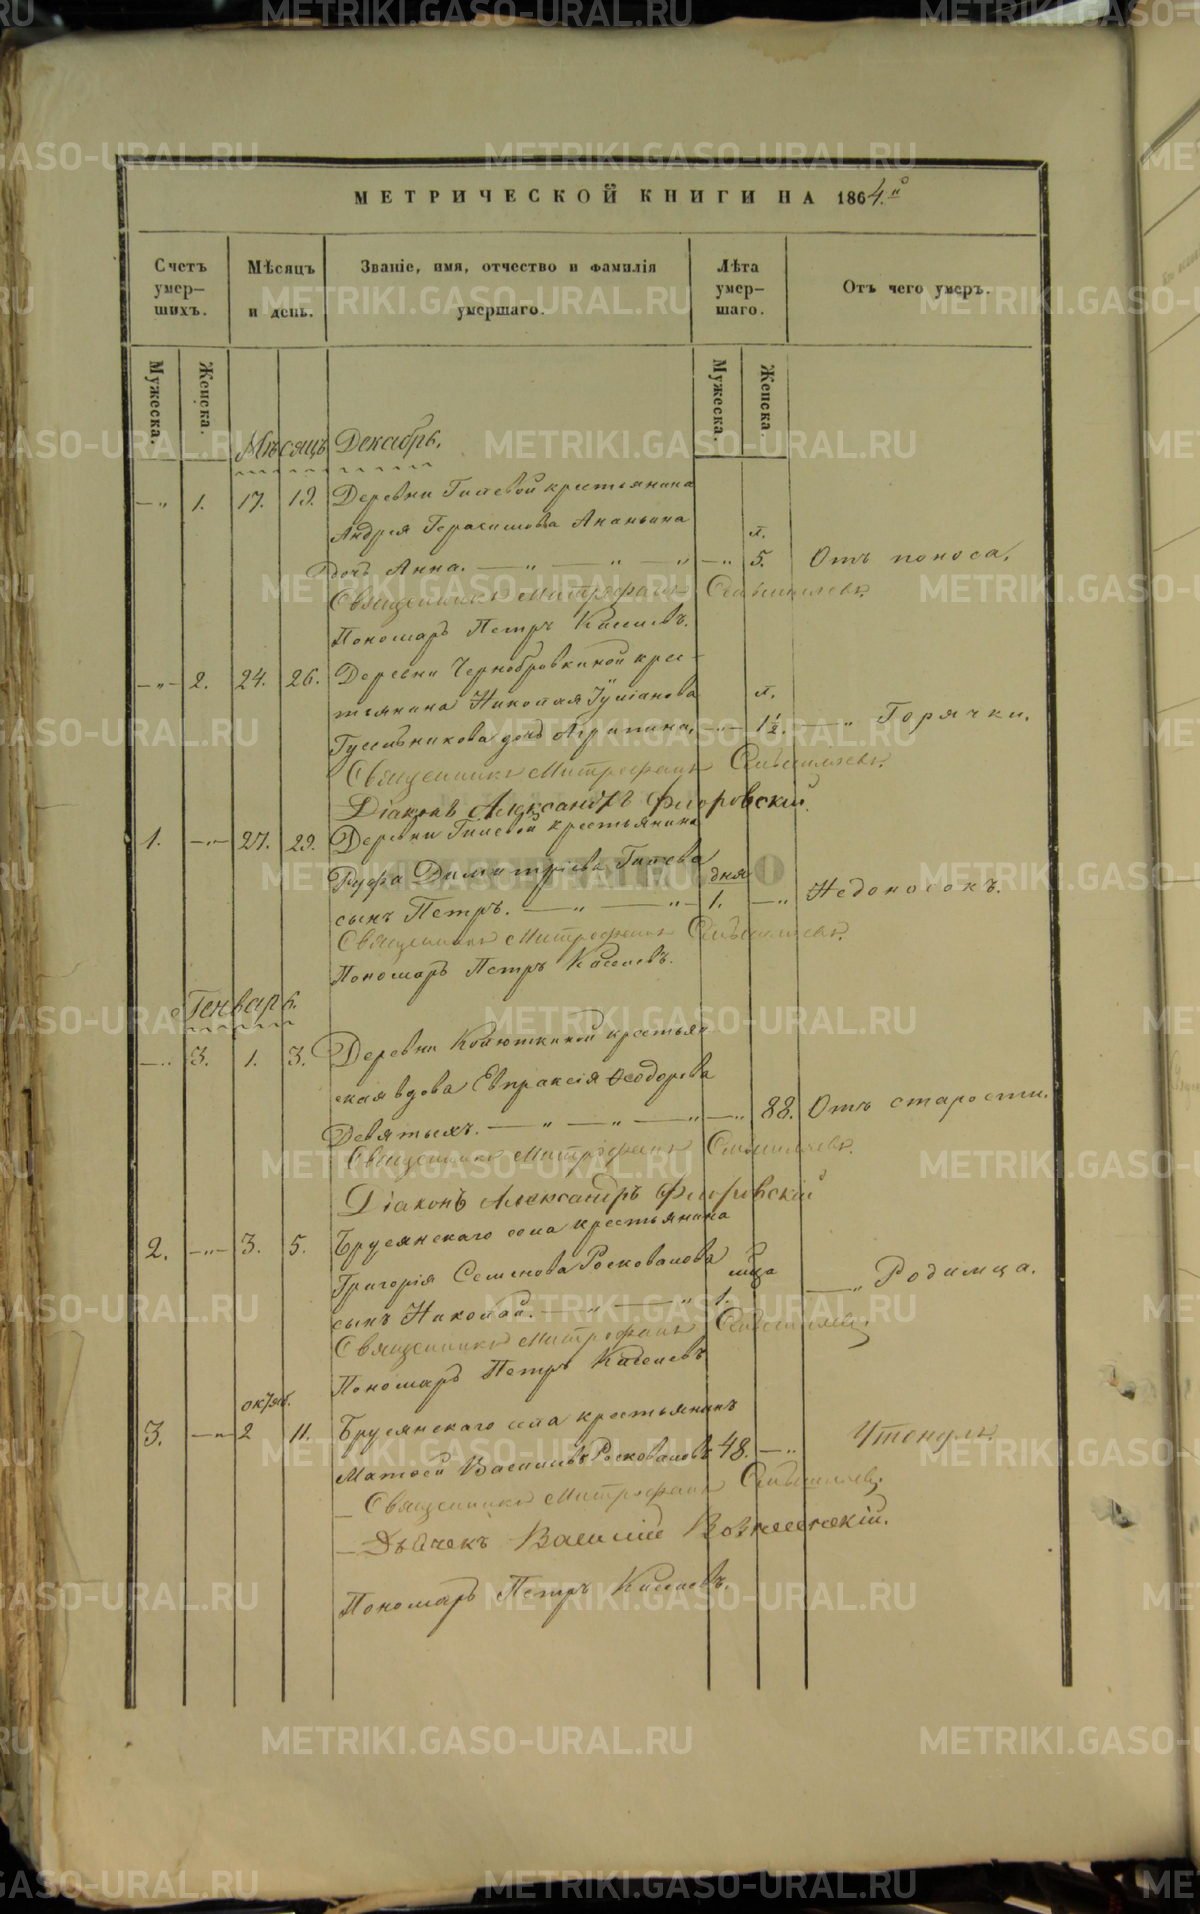 МЕТРИЧЕСКОЙ КНИГИ НА 1864.й
Счетъ умер-шихъ.
Мѣсяцъ и день.
Званіе, имя, отчество и фамилія умершаго.
Лѣта умер-шаго.
Отъ чего умеръ.
Мужеска.
Женска.
Мужеска.
Женска.
Мѣсяцъ Декабрь.
— „ 1. 17. 19. Деревни Гилевой крестьянина
Андрея Герасимова Ананьина л.
дочь Анна. — „ — „ — „ — „ 5. Отъ поноса.
Священникъ Митрофанъ
Пономарь Петръ
— „ — 2. 24. 26. Деревни Чернобровкиной крес-
тьянина Николая Іуліанова л.
дочь Агрипина. — „ — 1½. — „ Горячки.
Священникъ Митрофанъ
Діаконъ Александръ Флоровскій.
1. — „ — 27. 29. Деревни Гилевой крестьянина
Руфа Димитріева Гилева дня
сынъ Петръ. — „ — „ — 1. — „ Недоносокъ.
Священникъ Митрофанъ
Пономарь Петръ
Генварь.
— „ 3. 1. 3. Деревни Колюткиной крестьян-
ская вдова Евпраксія Ѳеодорова
Девятыхъ. — „ — „ — „ — „ 88. Отъ старости.
Священникъ Митрофанъ
Діаконъ Александръ Флоровскій
2. — „ — 3. 5. Брусянскаго села крестьянина
Григорія Семенова Росковалова м-ца
сынъ Николай. — „ — „ 1. — „ Родимца.
Священникъ Митрофанъ
Пономарь Петръ
октяб.
3. — „ 2 11. Брусянскаго села крестьянинъ
Матѳей Васильевъ Росковаловъ 48. — „ Утонулъ.
Священникъ Митрофанъ
Дьячекъ Василій Вознесенскій.
Пономарь Петръ
METRIKI.GASO-URAL.RU